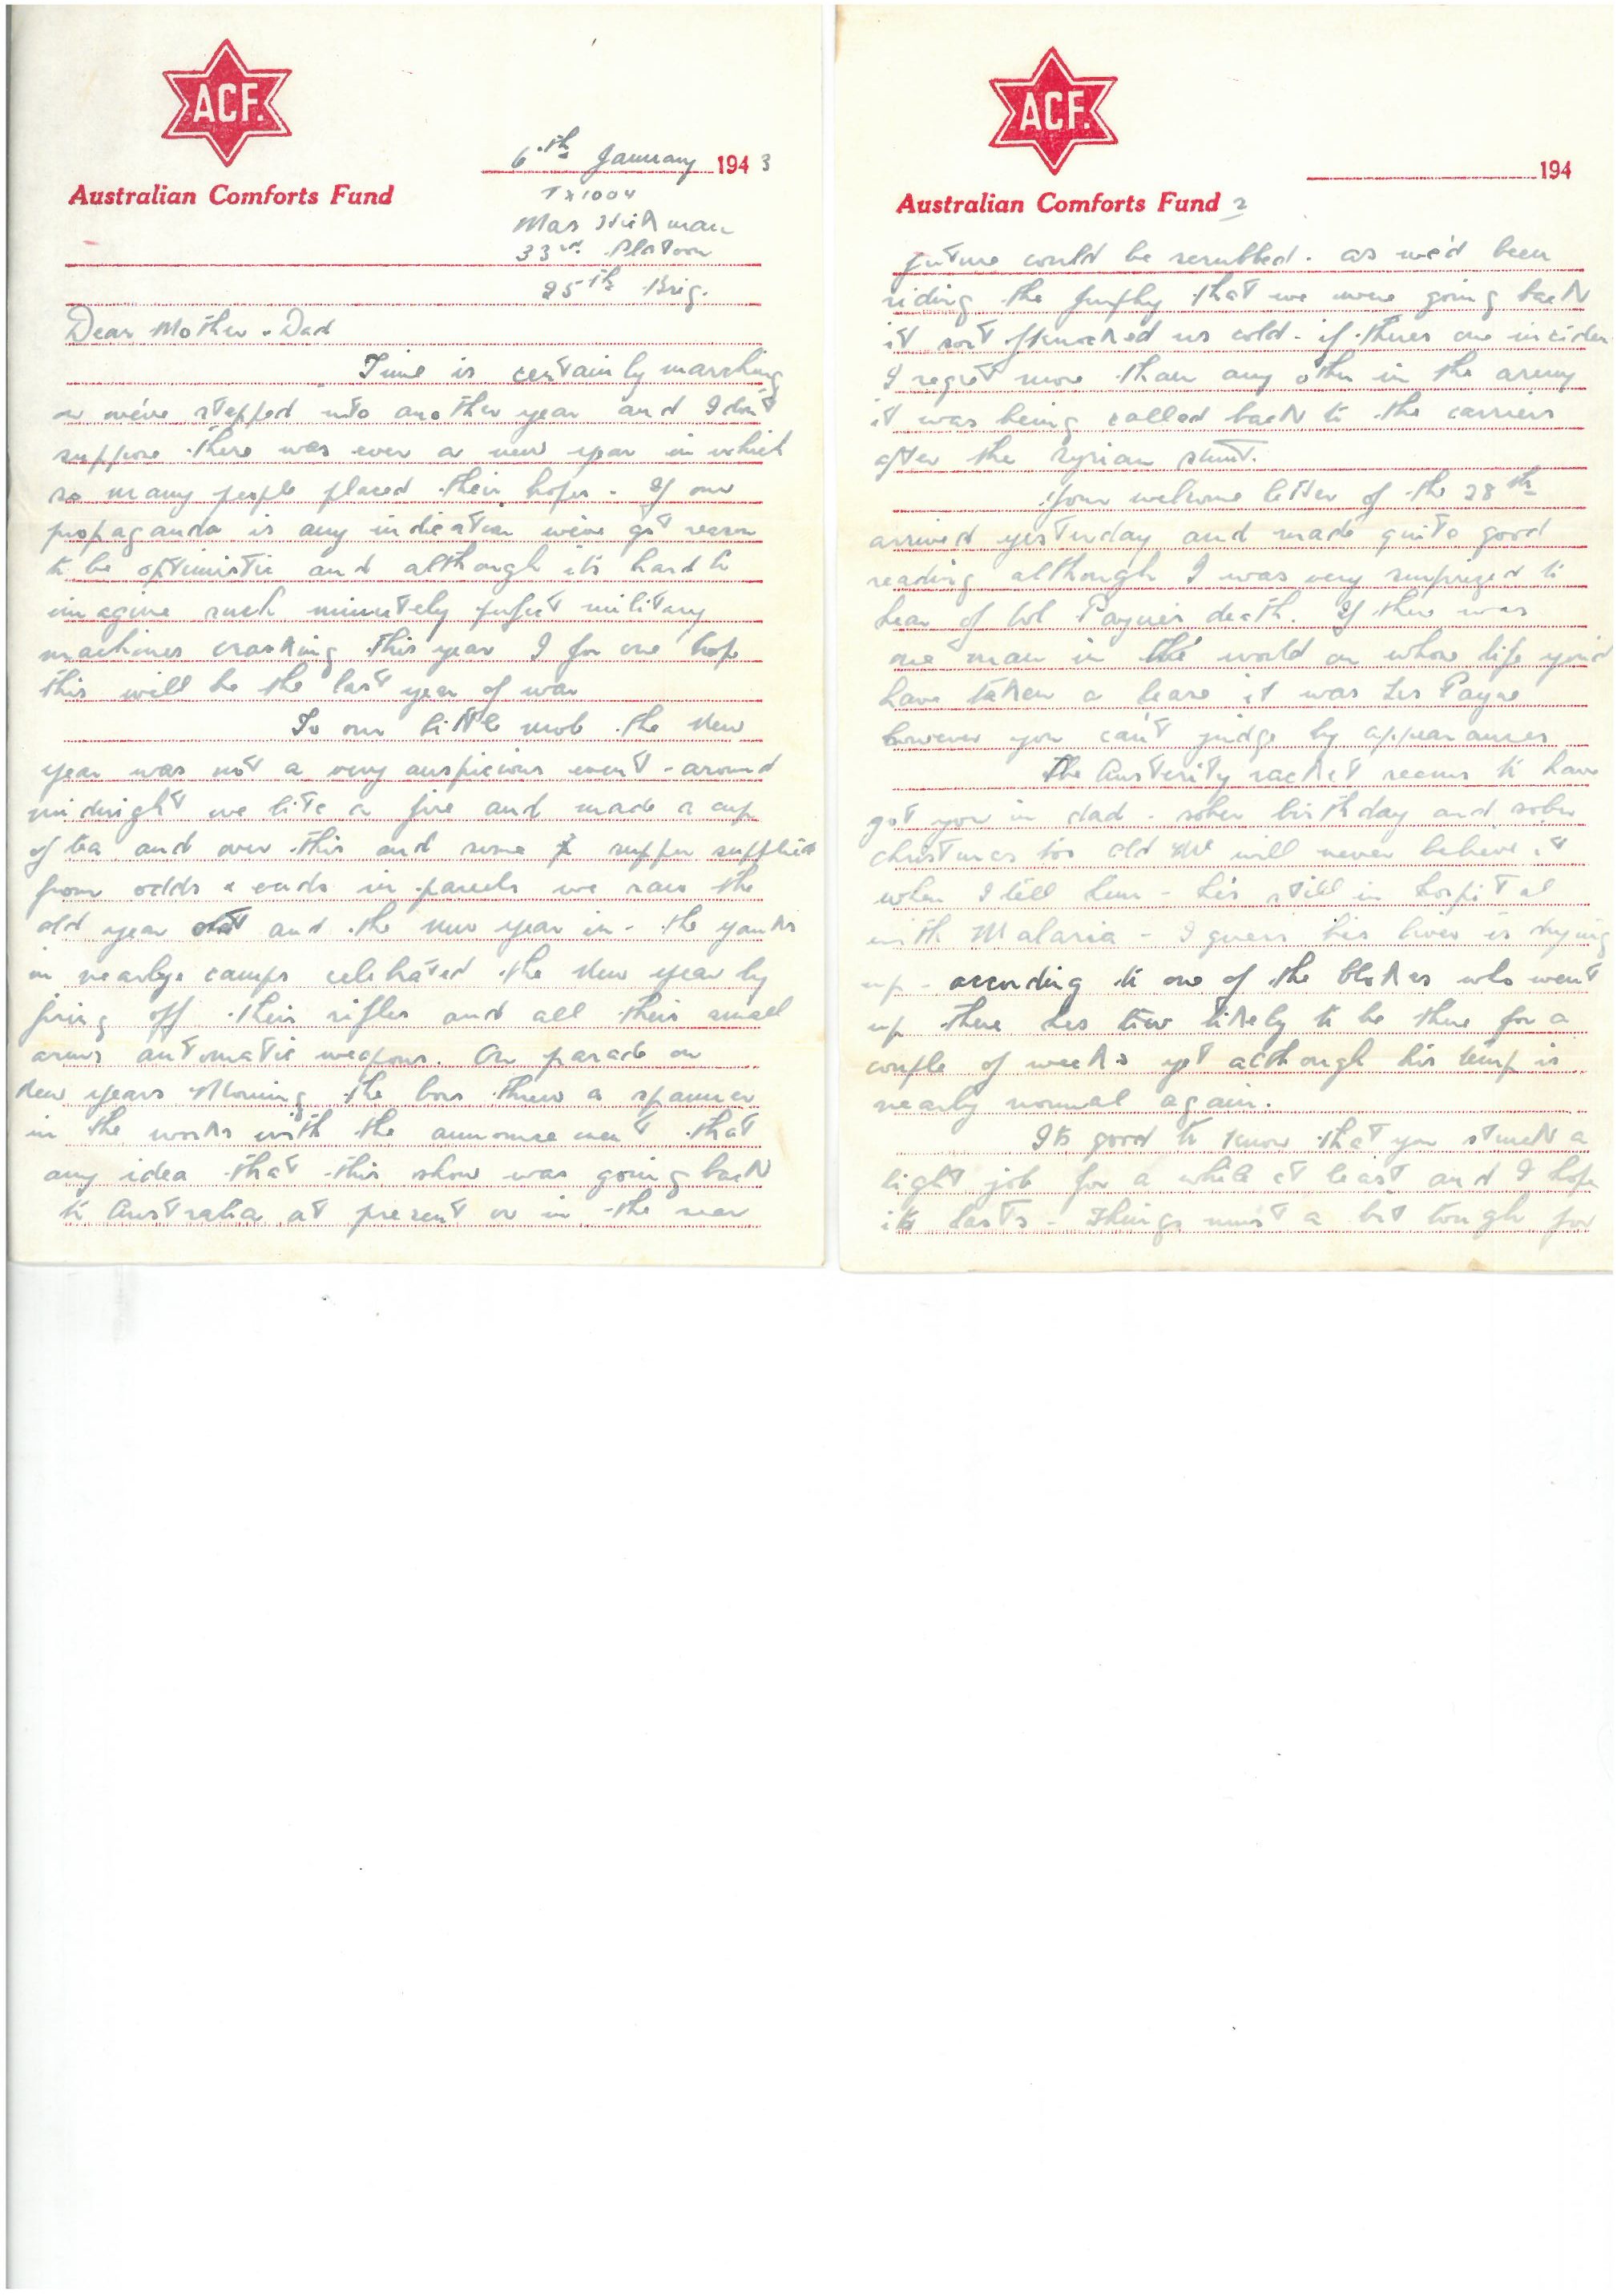 ACF.
6.th January 1943
Australian Comforts Fund
TX1004
Max Hickman
33rd. Platoon
25th Brig.
Dear Mother & Dad
Time is certainly marching
on we've stepped into another year and I don't
suppose there was ever a new year in which
so many people placed their hopes. If our
propaganda is any indication we've got reason
to be optimistic and although its hard to
imagine such minutely perfect military
machines cracking this year I for one hope
this will be the last year of war
To our little mob the New
year was not a very auspicious event - around
midnight we lite a fire and made a cup
of tea and over this and some supper supplied
from odds & ends in parcels we saw the
old year out and the new year in - the yanks
in nearby camps celebrated the New year by
firing off their rifles and all their small
arms automatic weapons. On parade on
New years Morning the boss threw a spanner
in the works with the announcement that
any idea that this show was going back
to Australia at present or in the near
ACF.
194
Australian Comforts Fund 2
future could be scrubbed. as we'd been
riding the furphy that we were going back
it sort of knocked us cold - if theres one inciden
I regret more than any other in the army
it was being called back to the carriers
after the Syrian stunt.
Your welcome letter of the 28th
arrived yesterday and made quite good
reading although I was very surprized to
hear of Col Paynes death. If there was
one man in the world on whose life you'd
have taken a lease it was Les Payne
however you can't judge by appearances
The Austerity racket seems to have
got you in dad - sober birthday and sober
christmas too old will never believe it
when I tell him - hes still in hospital
with Malaria - I guess his liver is drying
up - according to one of the blokes who went
up there hes likely to be there for a
couple of weeks yet although his temp is
nearly normal again.
Its good to know that you struck a
light job for a while at least and I hope
it lasts - things must a bit tough for